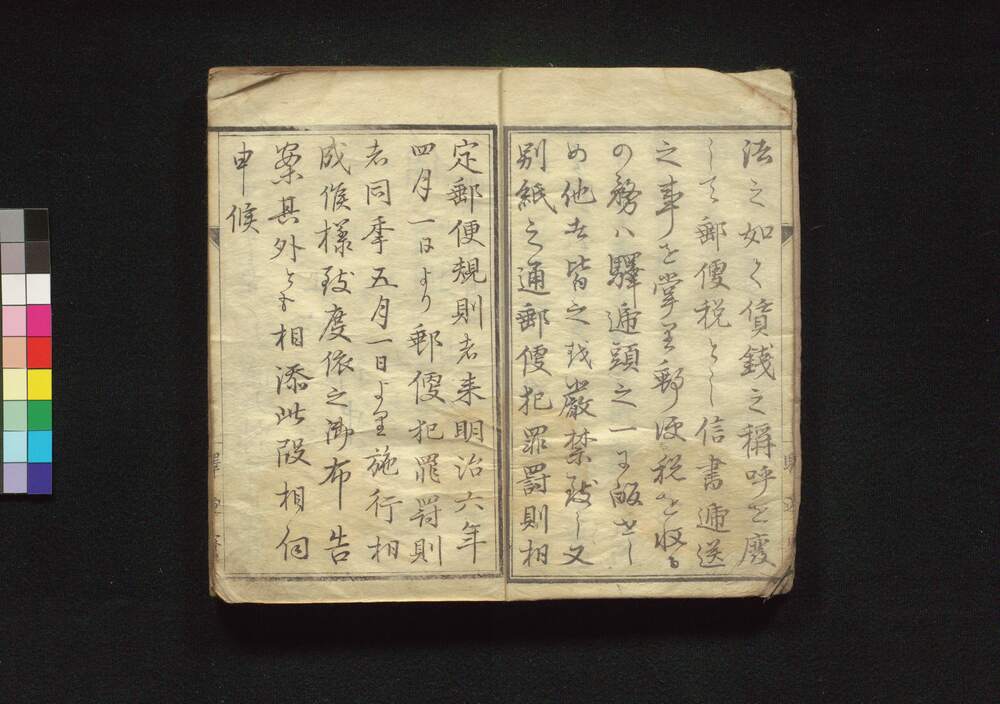 法之如く賃錢之稱呼を廢
して郵便税とし信書逓送
之事を掌り郵便税を収る
の務ハ驛逓頭之一に皈せし
め他は皆之を嚴禁致し又
別紙之通郵便犯罪罰則相
定郵便規則者来明治六年
四月一日より郵便犯罪罰則
者同年五月一日より施行相
成候様致度依之御布告
案其外とも相添此段相伺
申候